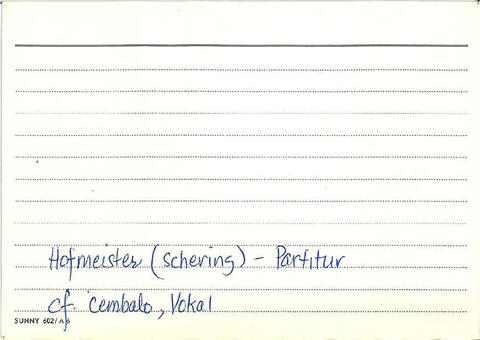 Hofmeister (Schering) - Partitur
cf. Cembalo, Vokal
SUNNY 602/A 6